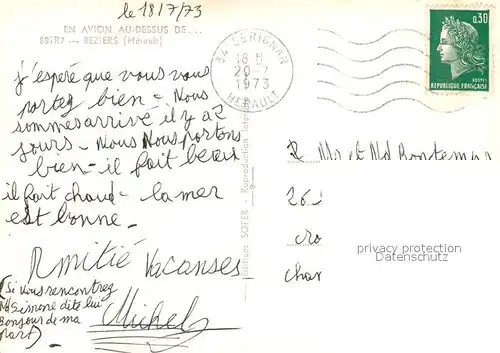 le 18/7/73
EN AVION AU-DESSUS DE...
BEZIERS (Hérault)
j'espère que vous vous
portez bien - Nous
sommes arrivé il y a 2
jours - Nous Nous portons
bien - il fait beau
il fait chaud - la mer
est bonne -
Amitié Vacanses
(Si vous rencontrez
Md Simone dite lui
Bonjour de ma
part)
Michel
Editions SOFER - Reproduction
34 SERIGNAN
18 H
20-7
1973
HERAULT
0,30
POSTES
REPUBLIQUE FRANÇAISE
Mr et Md
26
privacy protection
Datenschutz